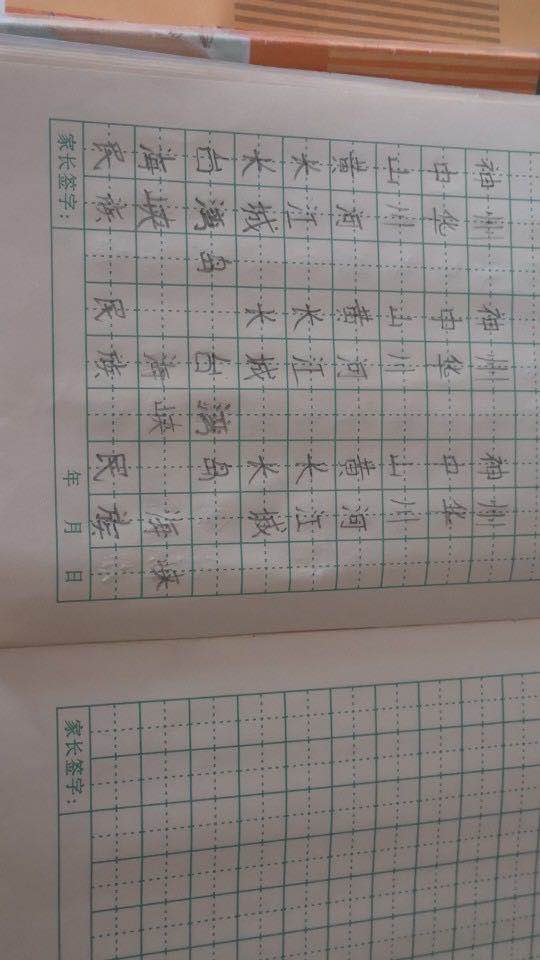 神州 神州 神州
中华 中华 中华
山川 山川 山川
黄河 黄河 黄河
长江 长江 长江
长城 长城 长城
台湾岛 台湾岛
海峡 海峡 海峡
民族 民族 民族
家长签字: 年 月 日
家长签字: